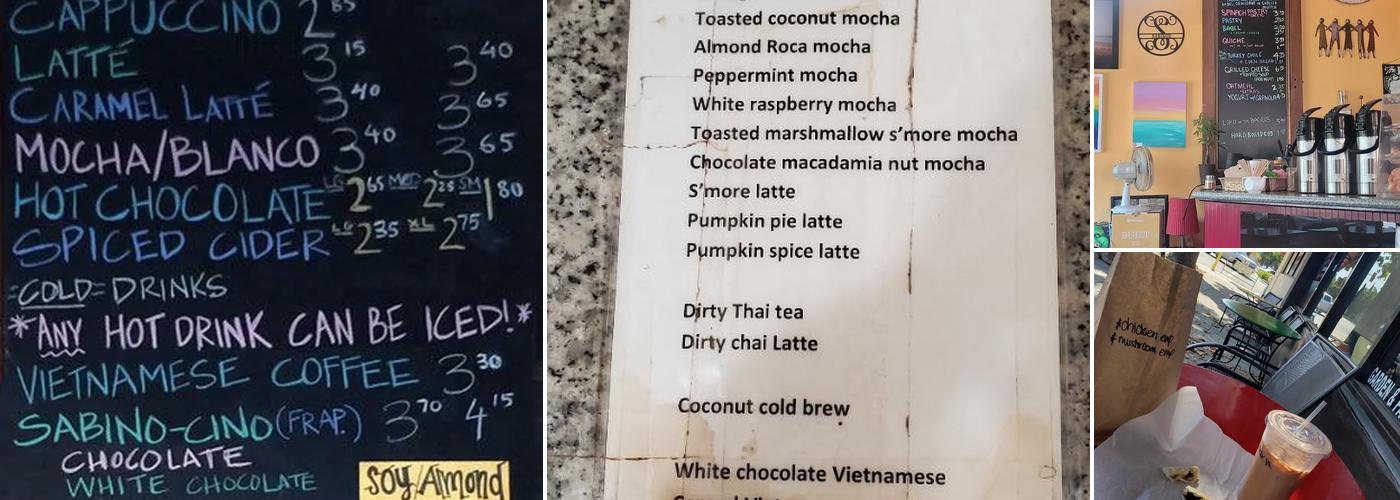 CAPPUCCINO 2 85
LATTÉ 3 15 3 40
CARAMEL LATTÉ 3 40 3 65
MOCHA/BLANCO 3 40 3 65
HOT CHOCOLATE LG 2 65 MED 2 25 SM 1 80
SPICED CIDER LG 2 35 XL 2 75
=COLD= DRINKS
*ANY HOT DRINK CAN BE ICED!*
VIETNAMESE COFFEE 3 30
SABINO-CINO (FRAP.) 3 70 4 15
CHOCOLATE
WHITE CHOCOLATE
SOY/Almond
Toasted coconut mocha
Almond Roca mocha
Peppermint mocha
White raspberry mocha
Toasted marshmallow s'more mocha
Chocolate macadamia nut mocha
S'more latte
Pumpkin pie latte
Pumpkin spice latte
Dirty Thai tea
Dirty chai Latte
Coconut cold brew
White chocolate Vietnamese
SPINACH PASTRY
PASTRY
BAGEL
QUICHE
TURKEY CHILI
GRILLED CHEESE
OATMEAL
YOGURT w/ GRANOLA
HARD BOILED EGG
BUILT
#chicken emp
#mushroom emp